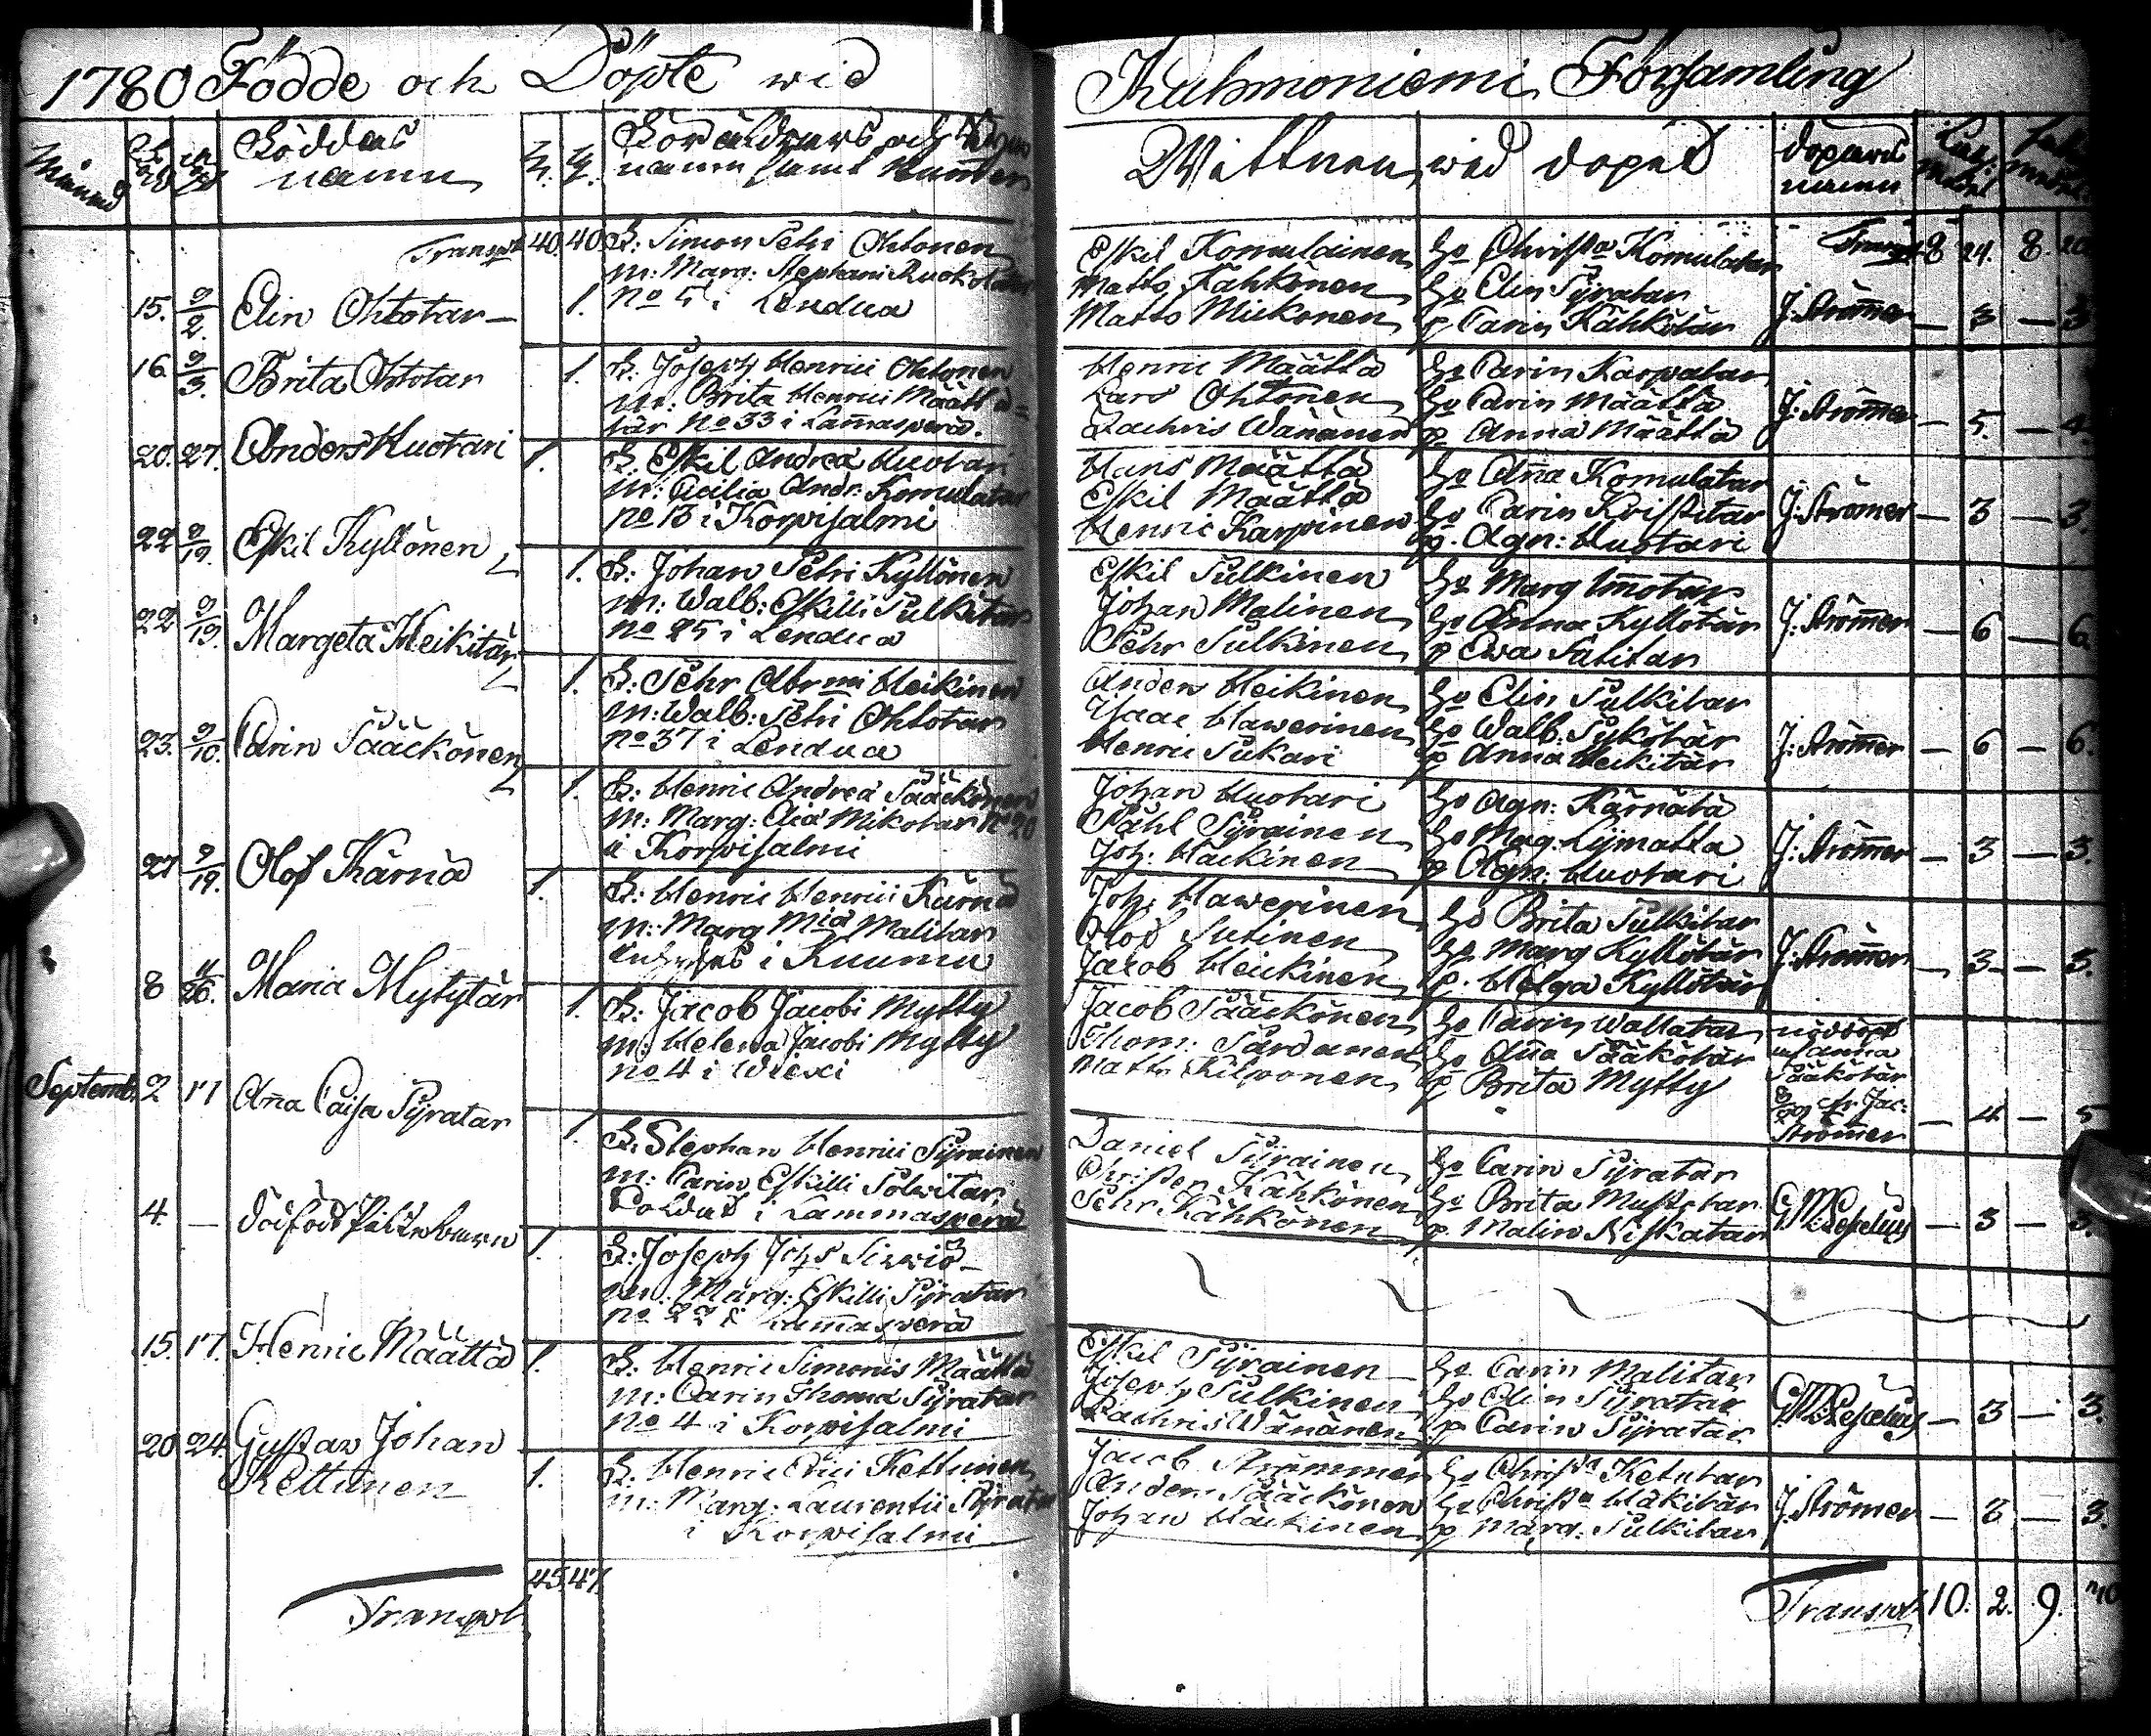 1780 Födde och Döpte wid
Kuhmoniemi Församling
Månad
Föddas
namn
Föräldrars och
namn samt Nummer
Wittnen wid dopet
dopares
namn
Transpt 40. 40.
B: Simon Petri Ohtonen
m: Marg: Stephani Ruokotar
15. 9/2. Elin Ohtotar 1. No 5 i Lendua
Eskil Komulainen
Matts Kähkönen
Matts Mickonen
ho Christa Komulatar
ho Elin Pyratar
p Carin Kähkötär
Transpt 8 24. 8. 20
J: Strömmer — 3 — 3
16. 9/3. Brita Ohtotar 1.
B. Joseph Henrici Ohtonen
m: Brita Henrici Määttä=
tär No 33 i Lammasperä.
Henric Määttä
Lars Ohtonen
Zachris Wänänen
ho Carin Karpatar
ho Carin Määttä
p Anna Määttä
J: Strömer — 5. — 4.
20. 27. Anders Huotari 1.
B. Eskil Andreæ Huotari
m: Cicilia Andr: Komulatar
No 13 i Korpisalmi
Hans Määttä
Eskil Määttä
Henric Karpinen
ho Anna Komulatar
ho Carin Kristitar
p. Agn: Huotari
J: Strömer — 3 — 3.
22 9/19. Eskil Kyllönen 1.
B: Johan Petri Kyllönen
m: Walb: Eskilli Pulkitar
No 25 i Lendua
Eskil Pulkinen
Johan Malinen
Pehr Pulkinen
ho Marg Immotar
ho Anna Kyllötär
p Ewa Satitar
J: Strömmer — 6 — 6
22 9/19. Margeta Heikitär 1.
B: Pehr Abrmi Heikinen
m: Walb: Petri Ohtotar
No 37 i Lendua
Anders Heikinen
Isaac Hawerinen
Henric Sukari
ho Elin Pulkitar
ho Walb: Sykötär
p Anna Heikitär
J: Strömmer — 6 — 6.
23. 9/10. Carin Pääckönen 1.
B: Henric Andreæ Pääckönen
m: Marg: Eliæ Mikotar No 20
i Korpisalmi
Johan Huotari
Påhl Pyrainen
Joh: Hackinen
ho Agn: Kärnätä
ho Mag: Lymatta
p Agn: Huotari
J: Strömmer — 3 — 3.
27 9/19. Olof Kärnä 1.
B: Henric Henrici Kärnä
m: Marg Mia Malitar
i Kuumu
Joh: Hawerinen
Olof Sutinen
Jacob Heickinen
ho Brita Pulkitar
ho Marg Kyllötär
p. Helga Kyllötär
J: Strömmer — 3 — 3.
8 Maria Mytytär 1.
B: Jacob Jacobi Mytty
m: Helena Jacobi Mytty
No 4 i Wiexi
Jacob Pääckönen
Thom: Pardanen
Matts Kilponen
ho Carin Wallatar
ho Anna Pääkötär
p Brita Mytty
nöddöpt
af Anna
Pääkötär
af Jac:
Strömmer — 4 — 5
Septemb. 2 17 Anna Caisa Pyratar 1.
B. Stephan Henrici Pyrainen
m: Carin Eskilli Polwitar
Soldat i Lammasperä
Daniel Pyrainen
Christer Kähkönen
Pehr Kähkönen
ho Carin Pyratar
ho Brita Mustotar
p Malin Niskatar
— 3 — 3.
4. — dödfödt Piltebarn 1.
B: Joseph Johs Sirwiö
m: Marg: Eskilli Pyratar
No 22 i Lammasperä
15. 17. Henric Määttä 1.
B: Henric Simonis Määttä
m: Carin Thomæ Pyratar
No 4 i Korpisalmi
Eskil Pyrainen
Joseph Pulkinen
Zachris Wänänen
ho Carin Malitar
ho Elin Pyratar
p Carin Pyratar
— 3 — 3.
20 24. Gustav Johan
Kettunen 1.
B. Henric Erici Kettunen
m: Marg: Laurentii Pyratar
i Korpisalmi
Jacob Strömmer
Anders Pääckönen
Johan Hackinen
ho Christa Ketutar
ho Christa Häkitär
p Marg: Pulkitar
J. Strömer — 3 — 3.
Transpt 45. 47.
Transpt 10. 2. 9.